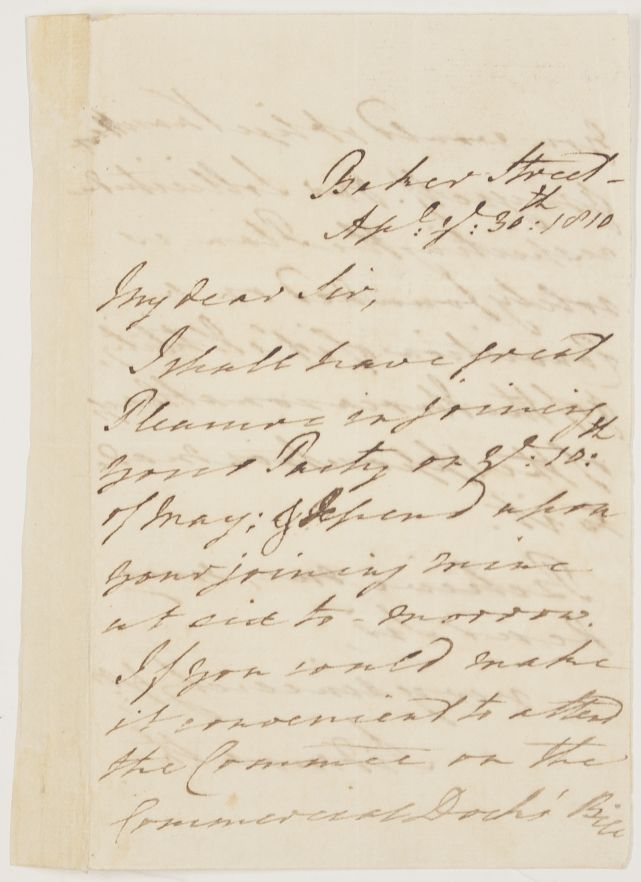 Baker Street -
Apl: ye: 30th: 1810
My dear Sir,
I shall have great
Pleasure in joining
your Party on ye: 10:th
of May; & depend upon
your joining mine
at six to-morrow.
If you could make
it convenient to attend
the Committee on the
Commercial Docks' Bill